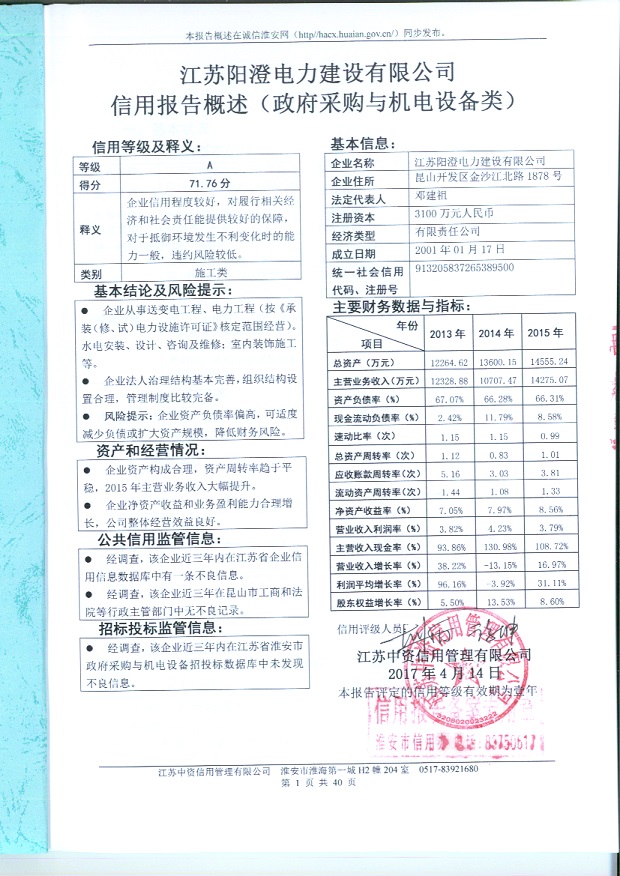 本报告概述在诚信淮安网（http//hacx.huaian.gov.cn/）同步发布。
江苏阳澄电力建设有限公司
信用报告概述（政府采购与机电设备类）
信用等级及释义：
等级 A
得分 71.76 分
释义
企业信用程度较好，对履行相关经
济和社会责任能提供较好的保障，
对于抵御环境发生不利变化时的能
力一般，违约风险较低。
类别 施工类
基本结论及风险提示：
● 企业从事送变电工程、电力工程（按《承
装（修、试）电力设施许可证》核定范围经营）。
水电安装、设计、咨询及维修；室内装饰施工
等。
● 企业法人治理结构基本完善，组织结构设
置合理，管理制度比较完备。
● 风险提示：企业资产负债率偏高，可适度
减少负债或扩大资产规模，降低财务风险。
资产和经营情况：
● 企业资产构成合理，资产周转率趋于平
稳，2015 年主营业务收入大幅提升。
● 企业净资产收益和业务盈利能力合理增
长，公司整体经营效益良好。
公共信用监管信息：
● 经调查，该企业近三年内在江苏省企业信
用信息数据库中有一条不良信息。
● 经调查，该企业近三年在昆山市工商和法
院等行政主管部门中无不良记录。
招标投标监管信息：
● 经调查，该企业近三年内在江苏省淮安市
政府采购与机电设备招投标数据库中未发现
不良信息。
基本信息：
企业名称 江苏阳澄电力建设有限公司
企业住所 昆山开发区金沙江北路 1878 号
法定代表人 邓建祖
注册资本 3100 万元人民币
经济类型 有限责任公司
成立日期 2001 年 01 月 17 日
统一社会信用 913205837265389500
代码、注册号
主要财务数据与指标：
年份
项目
2013 年 2014 年 2015 年
总资产（万元） 12264.62 13600.15 14555.24
主营业务收入(万元) 12328.88 10707.47 14275.07
资产负债率（%） 67.07% 66.28% 66.31%
现金流动负债率（%） 2.42% 11.79% 8.58%
速动比率（次） 1.15 1.15 0.99
总资产周转率（次） 1.12 0.83 1.01
应收账款周转率（次） 5.16 3.03 3.81
流动资产周转率（次） 1.44 1.08 1.33
净资产收益率（%） 7.05% 7.97% 8.56%
营业收入利润率（%） 3.82% 4.23% 3.79%
主营收入现金率（%） 93.86% 130.98% 108.72%
营业收入增长率（%） 38.22% -13.15% 16.97%
利润平均增长率（%） 96.16% -3.92% 31.11%
股东权益增长率（%） 5.50% 13.53% 8.60%
信用评级人员
江苏中资信用管理有限公司
2017 年 4 月 14 日
本报告评定的信用等级有效期为壹年
3208020023222
信用报
淮安市信用办 电话:83750617
江苏中资信用管理有限公司 淮安市淮海第一城 H2 幢 204 室 0517-83921680
第 1 页 共 40 页